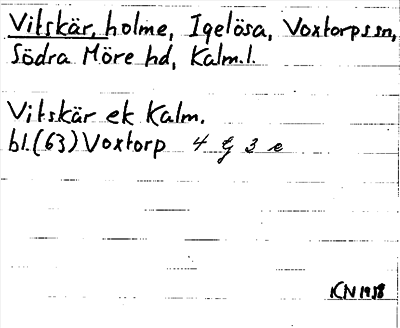 Vitskär, holme, Igelösa, Voxtorps sn,
Södra Möre hd, Kalm.l.
Vitskär ek Kalm.
bl.(63) Voxtorp 4 G 3 e
KN 1958